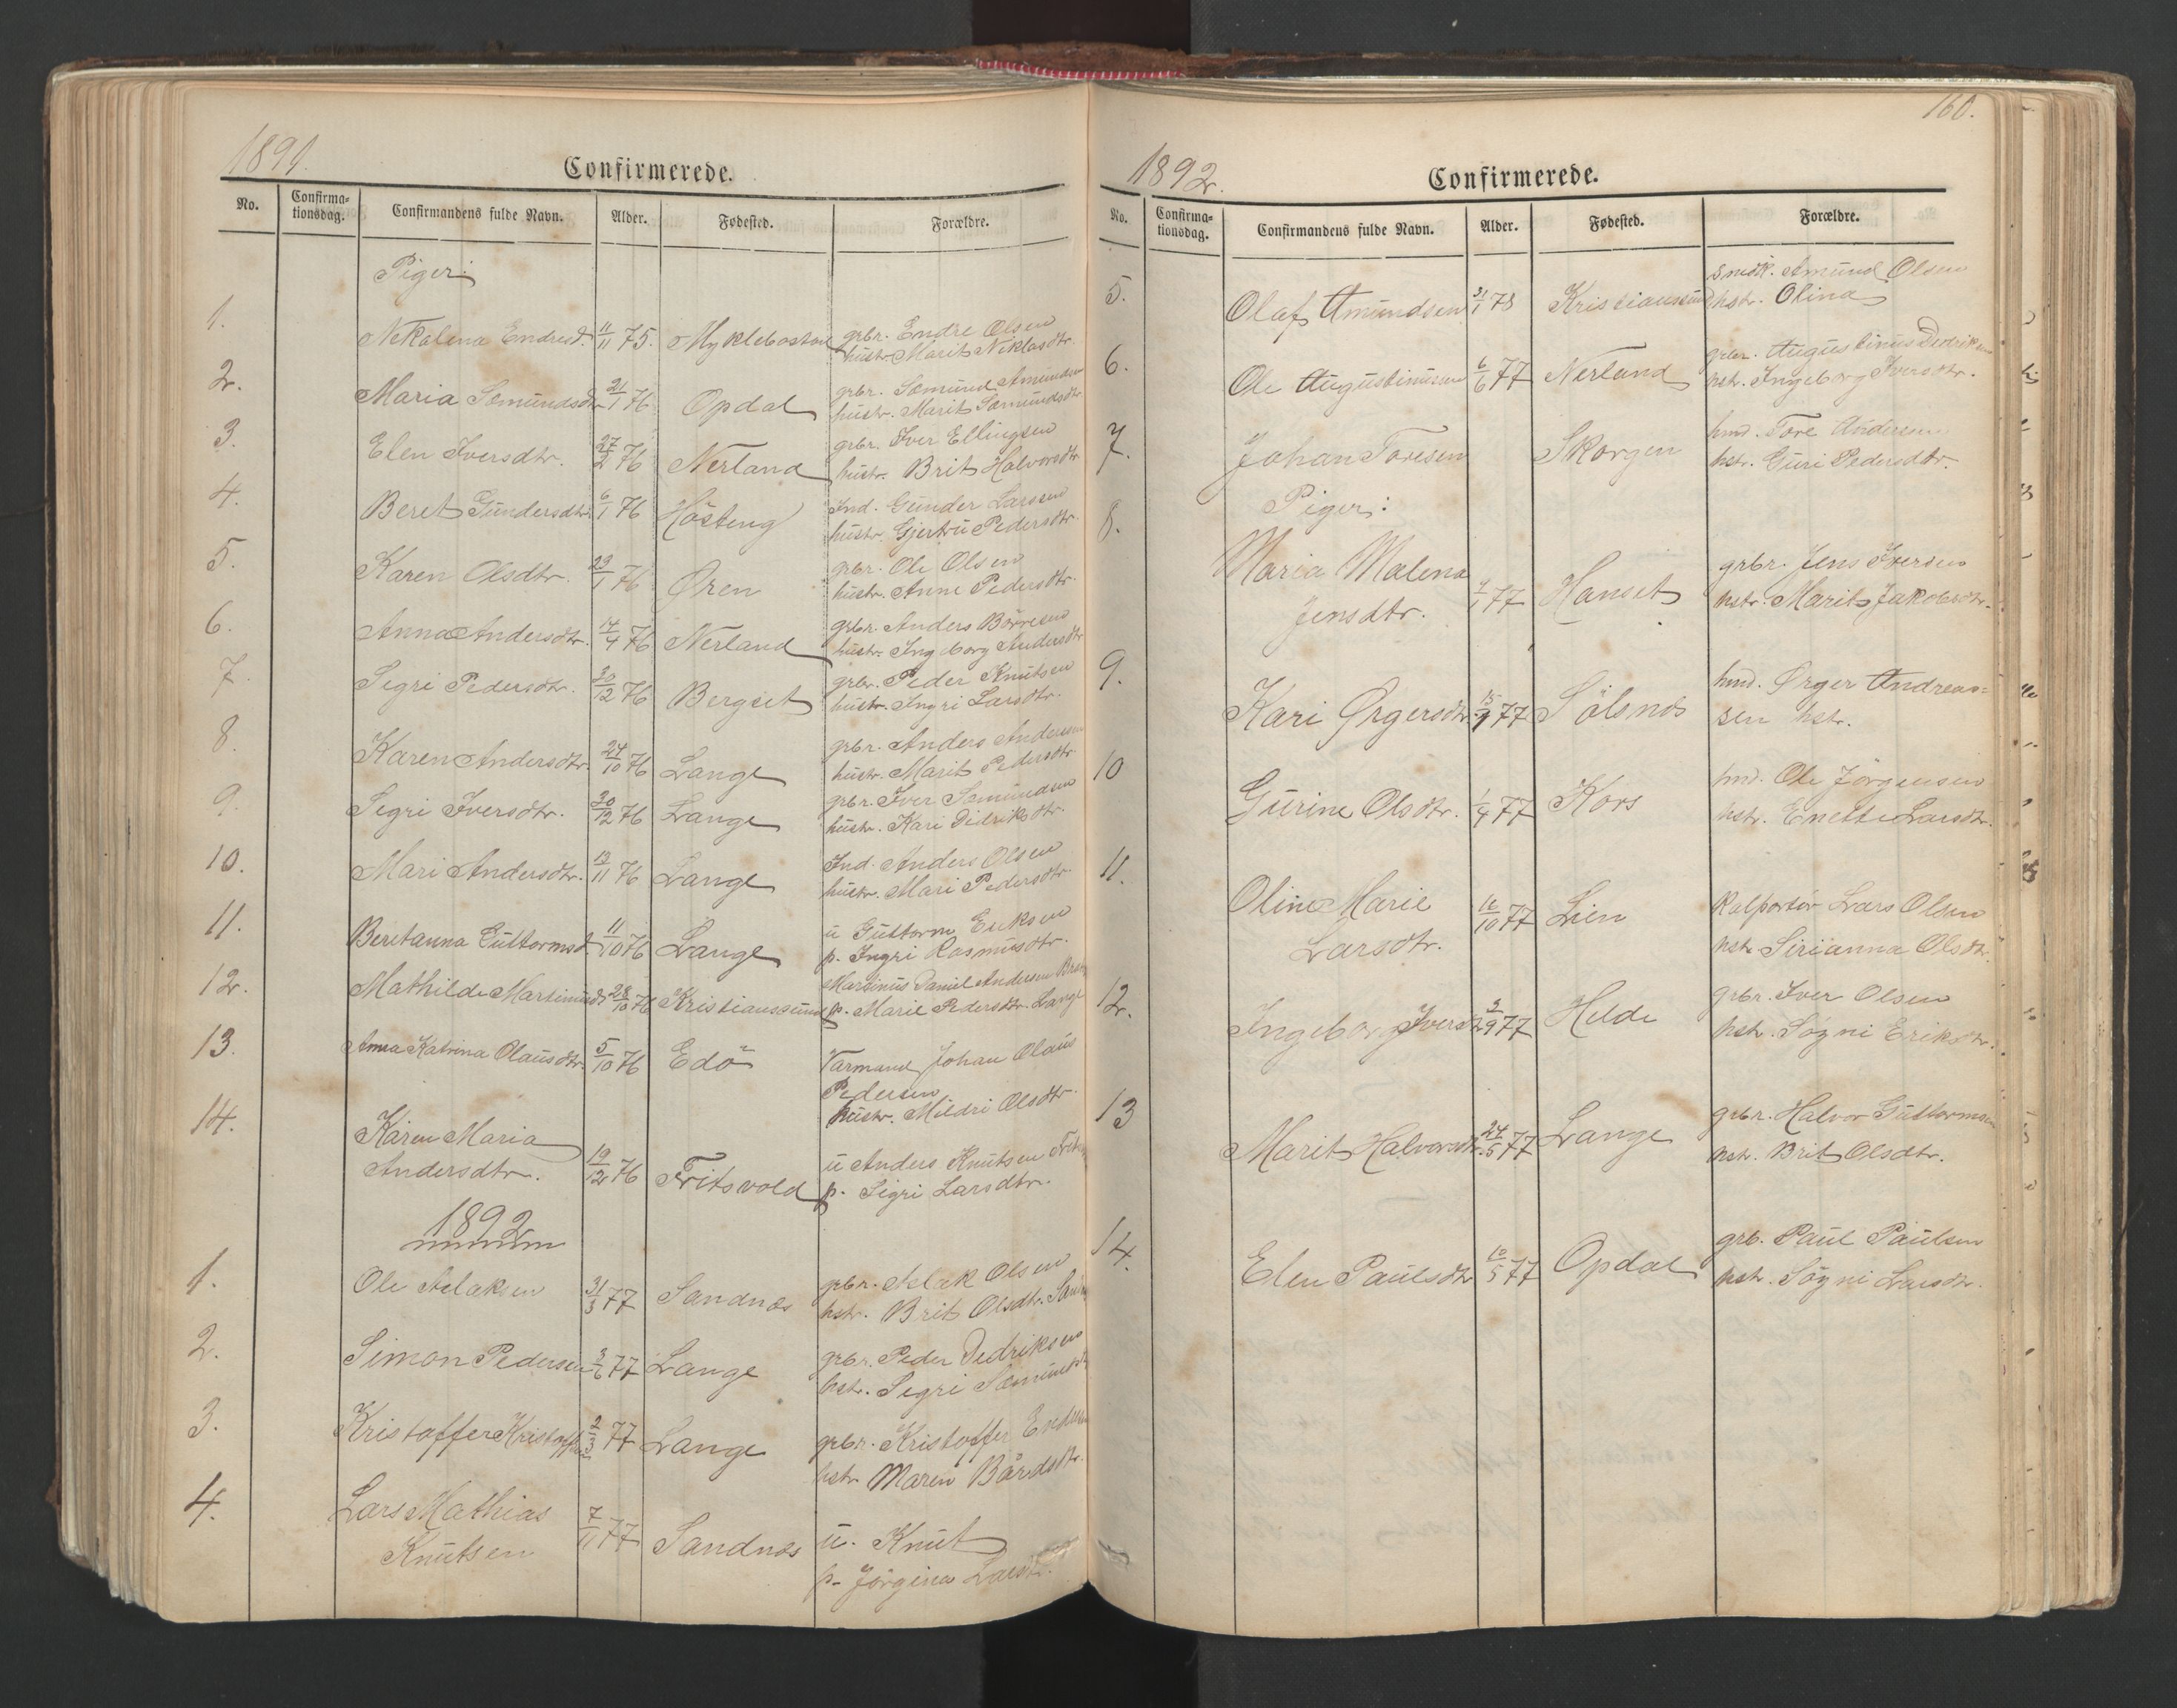 1891.
Confirmerede.
No. Confirma-tionsdag. Confirmandens fulde Navn. Alder. Fødested. Forældre.
Piger:
1. Nekolina Endresd. 11/11 75. Myklebostad grbr. Endre Olsen
hustr. Marit Niklasdtr.
2. Maria Somundsdtr 21/1 76 Opdal grbr. Somund Amundsen
hustr. Marit Somundsdtr
3. Elen Iversdtr. 27/2 76 Nerland grbr. Iver Ellingsen
hustr. Brit Halvorsdtr
4. Beret Gundersdtr 6/1 76 Hösteng Ind. Gunder Larssen
hustr. Gjertru Pedersdtr.
5. Karen Olsdtr. 23/1 76 Øren grbr. Ole Olsen
hustr. Anne Pedersdtr.
6. Anna Andersdtr. 14/4 76 Nerland grbr. Anders Börresen
hustr. Ingeborg Andersdtr
7. Segri Pedersdtr. 20/12 76 Bergset grbr. Peder Knutsen
hustr. Ingri Larsdtr.
8. Karen Andersdtr. 24/10 76 Lange grbr. Anders Andersen
hustr. Marit Pedersdtr
9. Segri Iversdtr. 20/12 76 Lange grbr. Iver Somundsen
hustr. Kari Didriksdtr.
10. Mari Andersdtr. 13/11 76 Lange Ind. Anders Olsen
hustr. Mari Pedersdtr.
11. Beritanna Guttormsd. 11/10 76 Lange u Guttorm Eriksen
p. Ingri Rasmusdtr.
12. Mathilde Martinusd 28/10 76 Kristianssund Martinus Daniel Andersen
p. Marie Pedersdtr. Lange
13. Anna Katrina Olausdtr. 5/10 76 Edö Varmand Johan Olaus
Pedersen
hustr. Mildri Olsdtr.
14. Karen Maria
Andersdtr. 19/12 76 Fritsvold u Anders Knutsen
p. Sigri Larsdtr.
1892
1. Ole Aslaksen 31/3 77 Sandnes grbr. Aslak Olsen
hstr. Brit Olsdtr.
2. Simon Pedersen 3/6 77 Lange grbr. Peder Dedriksen
hstr. Segri Somundsdtr
3. Kristoffer Kristoffersen 2/3 77 Lange grbr. Kristoffer Endresen
hstr Maren Bårdsdtr.
4. Lars Mathias
Knutsen 7/11 77 Sandnes u. Knut
p. Jörgina Larsdtr.
160.
1892.
Confirmerede.
No. Confirma-tionsdag. Confirmandens fulde Navn. Alder. Fødested. Forældre.
5. Olaf Amundsen 31/1 78 Kristianssund smdk. Amund Olsen
hstr. Olina
6. Ole Augustinussen 6/6 77 Nerland grbr. Augustinus Dedriksen
hstr. Ingeborg Iversdtr.
7. Johan Toresen Skorgen hmd. Tore Andersen
hstr. Guri Pedersdtr.
Piger:
8. Maria Malena
Jensdtr. 4/1 77 Hanset grbr. Jens Iversen
hstr. Marit Jakobsdtr.
9. Kari Ørgersdtr. 15/9 77 Sölsnes hmd. Ørger Andreas-
sen hstr.
10 Gurine Olsdtr. 1/4 77 Kors hmd. Ole Jörgensen
hstr. Enette Larsdtr.
11. Oline Marie
Larsdtr. 16/10 77 Lien Kolportör Lars Olsen
hstr Sirianna Olsdtr.
12. Ingeborg Iversdtr 2/9 77 Helde grbr. Iver Olsen
hstr. Sögni Eriksdtr.
13 Marit Halvorsdtr. 24/5 77 Lange grbr. Halvor Guttormsen
hstr. Brit Olsdtr.
14. Elen Paulsdtr 10/5 77 Opdal grb. Paul Paulsen
hstr. Sögni Larsdtr.